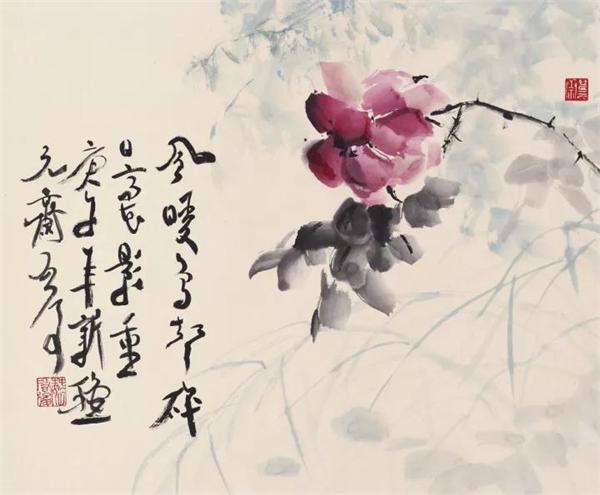 風暖鳥聲碎
日高花影重
庚午年新
元齋